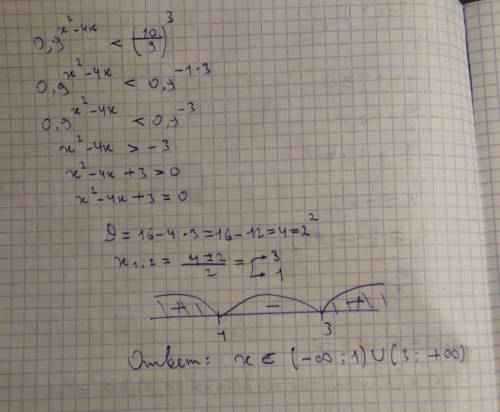 0,9^(x²-4x) < (10/9)³
0,9^(x²-4x) < 0,9^(-1·3)
0,9^(x²-4x) < 0,9^(-3)
x²-4x > -3
x²-4x+3>0
x²-4x+3=0
D=16-4·3=16-12=4=2²
x₁;₂ = (4±2)/2 = [3 1
+ - +
1 3
Ответ: x ∈ (-∞;1)∪(3;+∞)